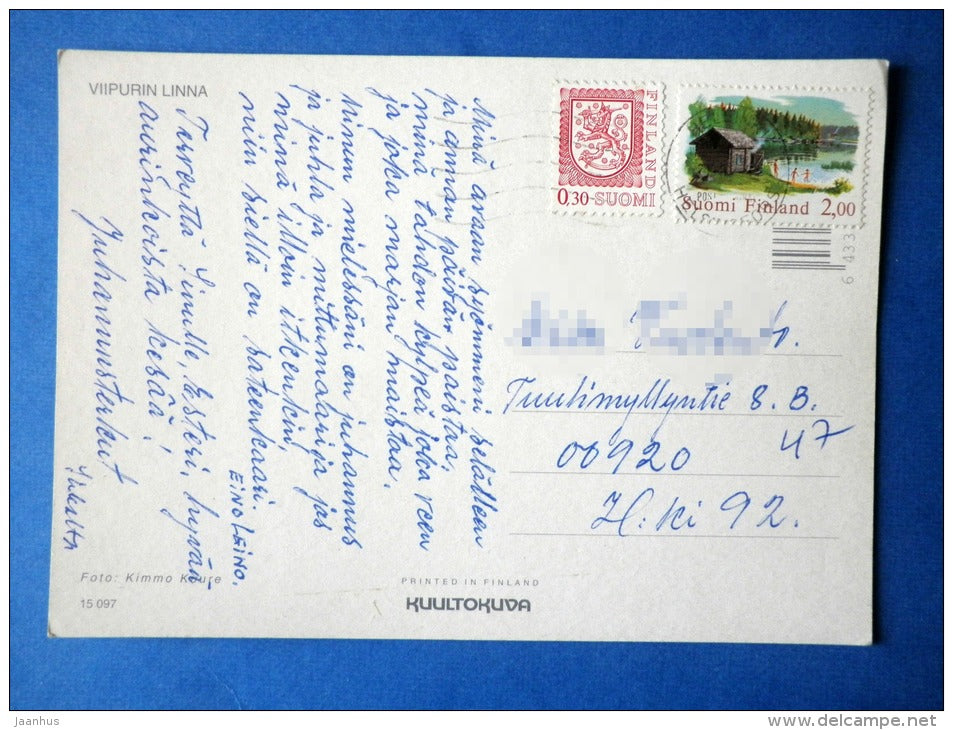 VIIPURIN LINNA
Minä avaan syömmeni selälleen
ja annan päivän paistaa,
minä tahdon kylpeä joka veen
ja joka marjan maistaa.
Minun mielessäni on juhannus
ja juhla ja mittumaari ja jos
minä illoin itkenkin,
niin siellä on sateenkaari.
EINO LEINO.
Terveyttä Sinulle, Esteri, hyvää
aurinkoista kesää!
Juhannusterkut
Foto: Kimmo Kaure
15 097
PRINTED IN FINLAND
KUULTOKUVA
FINLAND
0,30-SUOMI
Suomi Finland 2,00
6 433
Tuulimyllyntie 8. B.
47
00920
H:ki 92.
jaanhus
www.delcampe.net